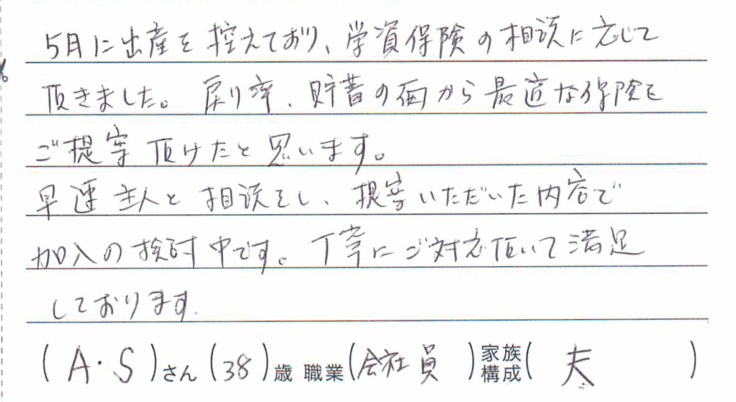 5月に出産を控えており、学資保険の相談に応じて
頂きました。戻り率、貯蓄の面から最適な保険を
ご提案頂けたと思います。
早速主人と相談をし、提案いただいた内容で
加入の検討中です。丁寧にご対応頂いて満足
しております.
(A・S)さん(38)歳 職業(会社員)家族構成(夫)